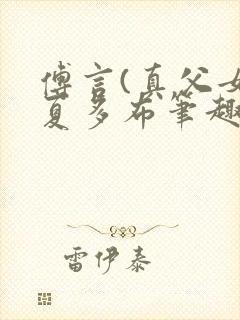 傅言(真父女
夏多布笔趣
雷伊泰